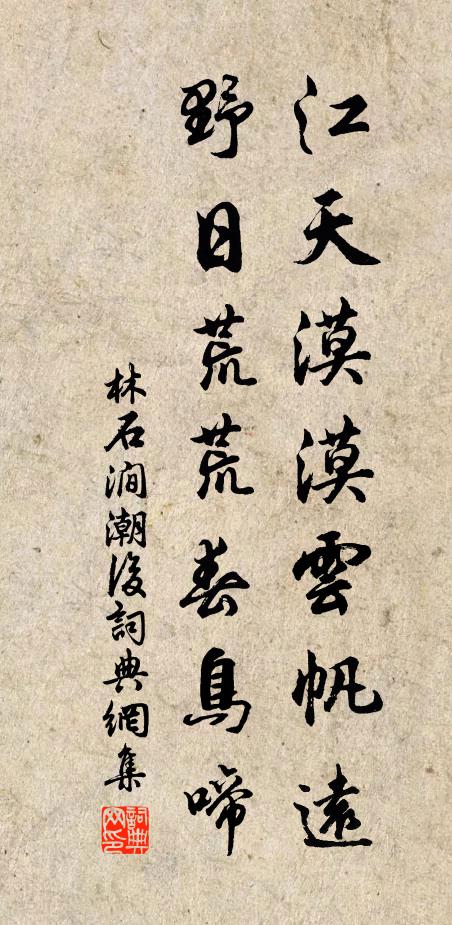 江天漠漠雲帆遠
野日荒荒春鳥啼
林石澗潮後詞典網集
詞典网印